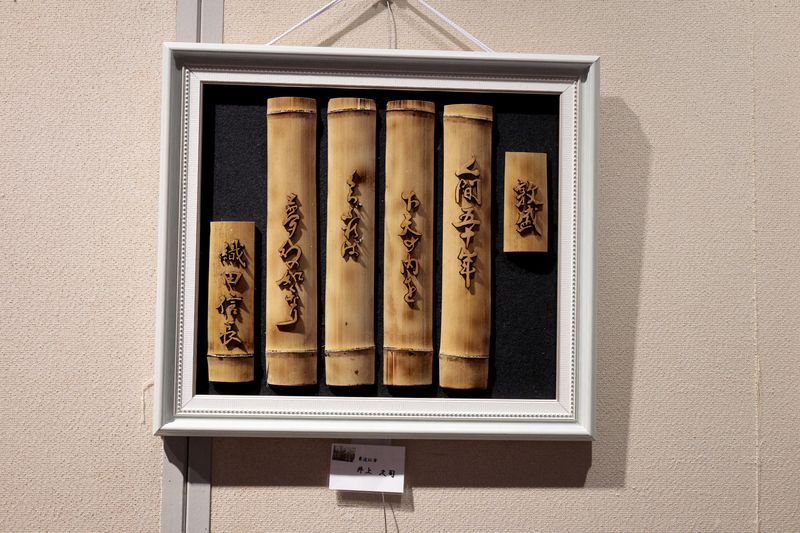 敦盛
人間五十年
下天の内を
くらぶれば
夢幻の如くなり
織田信長
井上 久司